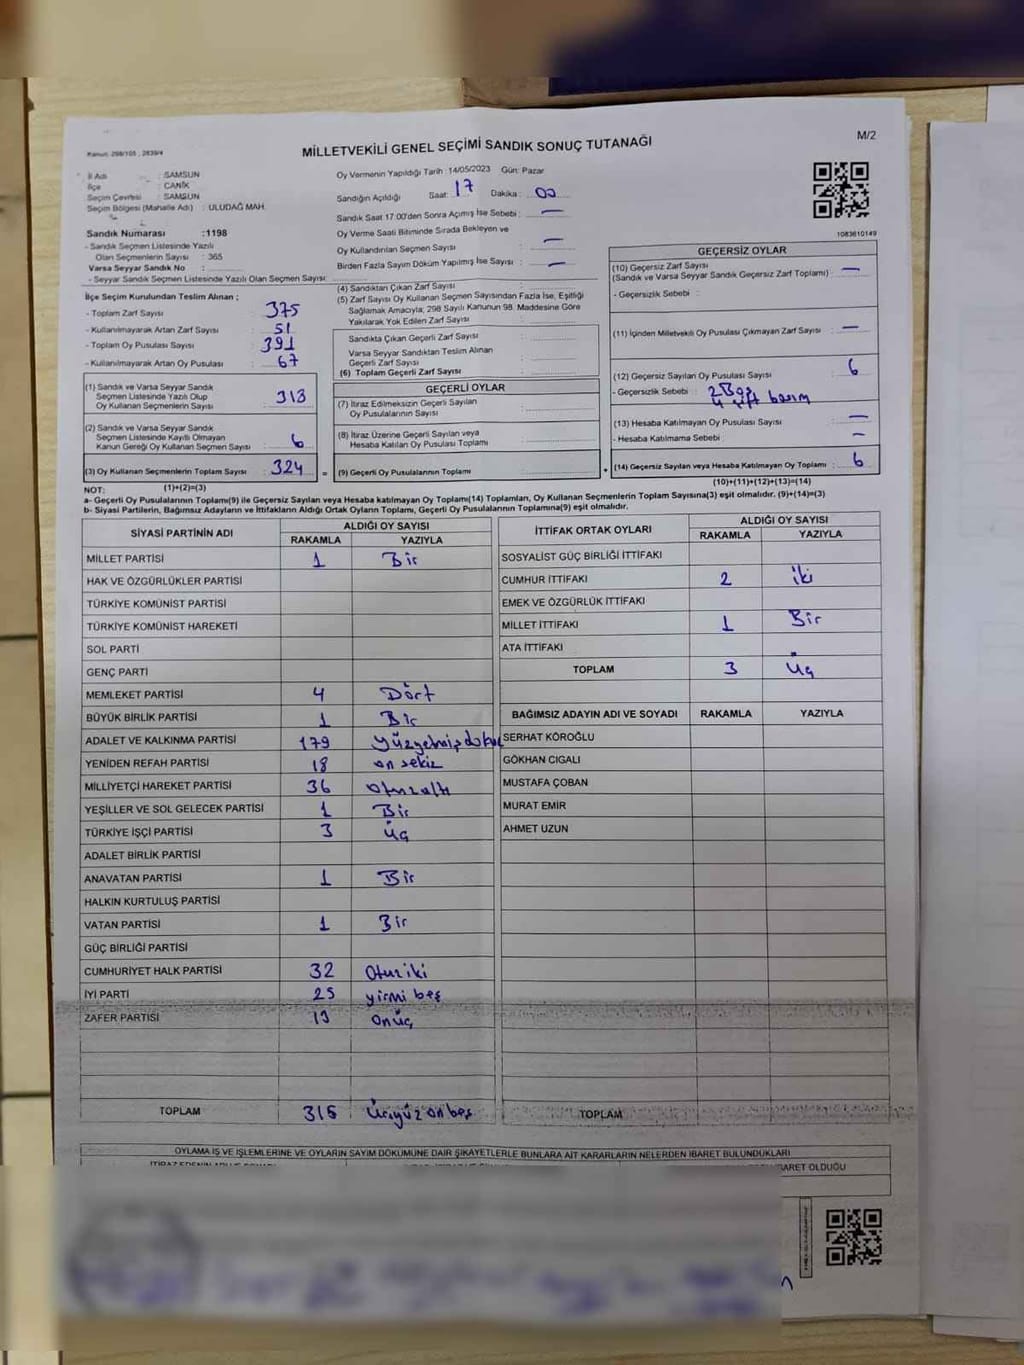 MİLLETVEKİLİ GENEL SEÇİMİ SANDIK SONUÇ TUTANAĞI
M/2
Kanun: 298/105 , 2839/4
İl Adı : SAMSUN
İlçe : CANİK
Seçim Çevresi : SAMSUN
Seçim Bölgesi (Mahalle Adı) : ULUDAĞ MAH.
Sandık Numarası :1198
- Sandık Seçmen Listesinde Yazılı
Olan Seçmenlerin Sayısı : 365
Varsa Seyyar Sandık No :
- Seyyar Sandık Seçmen Listesinde Yazılı Olan Seçmen Sayısı
Oy Vermenin Yapıldığı Tarih :14/05/2023 Gün: Pazar
Sandığın Açıldığı Saat: 17 Dakika : 00
Sandık Saat 17:00'den Sonra Açımış İse Sebebi : —
Oy Verme Saati Bitiminde Sırada Bekleyen ve
Oy Kullandırılan Seçmen Sayısı —
Birden Fazla Sayım Döküm Yapılmış İse Sayısı : —
1083610149
İlçe Seçim Kurulundan Teslim Alınan ;
- Toplam Zarf Sayısı : 375
- Kullanılmayarak Artan Zarf Sayısı : 51
- Toplam Oy Pusulası Sayısı : 391
- Kullanılmayarak Artan Oy Pusulası : 67
(1) Sandık ve Varsa Seyyar Sandık
Seçmen Listesinde Yazılı Olup
Oy Kullanan Seçmenlerin Sayısı : 318
(2) Sandık ve Varsa Seyyar Sandık
Seçmen Listesinde Kayıtlı Olmayan
Kanun Gereği Oy Kullanan Seçmen Sayısı : 6
(3) Oy Kullanan Seçmenlerin Toplam Sayısı : 324 =
(1)+(2)=(3)
(4) Sandıktan Çıkan Zarf Sayısı :
(5) Zarf Sayısı Oy Kullanan Seçmen Sayısından Fazla İse, Eşitliği
Sağlamak Amacıyla; 298 Sayılı Kanunun 98. Maddesine Göre
Yakılarak Yok Edilen Zarf Sayısı :
Sandıkta Çıkan Geçerli Zarf Sayısı :
Varsa Seyyar Sandıktan Teslim Alınan
Geçerli Zarf Sayısı :
(6) Toplam Geçerli Zarf Sayısı :
GEÇERLİ OYLAR
(7) İtiraz Edilmeksizin Geçerli Sayılan
Oy Pusulalarının Sayısı :
(8) İtiraz Üzerine Geçerli Sayılan veya
Hesaba Katılan Oy Pusulası Toplamı :
(9) Geçerli Oy Pusulalarının Toplamı : +
GEÇERSİZ OYLAR
(10) Geçersiz Zarf Sayısı
(Sandık ve Varsa Seyyar Sandık Geçersiz Zarf Toplamı) : —
- Geçersizlik Sebebi :
(11) İçinden Milletvekili Oy Pusulası Çıkmayan Zarf Sayısı : —
(12) Geçersiz Sayılan Oy Pusulası Sayısı : 6
- Geçersizlik Sebebi : 2 Boş
4 çift basım
(13) Hesaba Katılmayan Oy Pusulası Sayısı : —
- Hesaba Katılmama Sebebi : —
(14) Geçersiz Sayılan veya Hesaba Katılmayan Oy Toplamı : 6
(10)+(11)+(12)+(13)=(14)
NOT:
a- Geçerli Oy Pusulalarının Toplamı(9) ile Geçersiz Sayılan veya Hesaba katılmayan Oy Toplamı(14) Toplamları, Oy Kullanan Seçmenlerin Toplam Sayısına(3) eşit olmalıdır. (9)+(14)=(3)
b- Siyasi Partilerin, Bağımsız Adayların ve İttifakların Aldığı Ortak Oyların Toplamı, Geçerli Oy Pusulalarının Toplamına(9) eşit olmalıdır.
SİYASİ PARTİNİN ADI ALDIĞI OY SAYISI
RAKAMLA YAZIYLA
MİLLET PARTİSİ 1 Bir
HAK VE ÖZGÜRLÜKLER PARTİSİ
TÜRKİYE KOMÜNİST PARTİSİ
TÜRKİYE KOMÜNİST HAREKETİ
SOL PARTİ
GENÇ PARTİ
MEMLEKET PARTİSİ 4 Dört
BÜYÜK BİRLİK PARTİSİ 1 Bir
ADALET VE KALKINMA PARTİSİ 179 yüzyetmişdokuz
YENİDEN REFAH PARTİSİ 18 on sekiz
MİLLİYETÇİ HAREKET PARTİSİ 36 otuzaltı
YEŞİLLER VE SOL GELECEK PARTİSİ 1 Bir
TÜRKİYE İŞÇİ PARTİSİ 3 üç
ADALET BİRLİK PARTİSİ
ANAVATAN PARTİSİ 1 Bir
HALKIN KURTULUŞ PARTİSİ
VATAN PARTİSİ 1 Bir
GÜÇ BİRLİĞİ PARTİSİ
CUMHURİYET HALK PARTİSİ 32 otuziki
İYİ PARTİ 25 yirmi beş
ZAFER PARTİSİ 13 onüç
TOPLAM 315 üçyüz on beş
İTTİFAK ORTAK OYLARI ALDIĞI OY SAYISI
RAKAMLA YAZIYLA
SOSYALİST GÜÇ BİRLİĞİ İTTİFAKI
CUMHUR İTTİFAKI 2 iki
EMEK VE ÖZGÜRLÜK İTTİFAKI
MİLLET İTTİFAKI 1 Bir
ATA İTTİFAKI
TOPLAM 3 üç
BAĞIMSIZ ADAYIN ADI VE SOYADI RAKAMLA YAZIYLA
SERHAT KÖROĞLU
GÖKHAN CIGALI
MUSTAFA ÇOBAN
MURAT EMİR
AHMET UZUN
TOPLAM
OYLAMA İŞ VE İŞLEMLERİNE VE OYLARIN SAYIM DÖKÜMÜNE DAİR ŞİKAYETLERLE BUNLARA AİT KARARLARIN NELERDEN İBARET BULUNDUKLARI
OLDUĞU